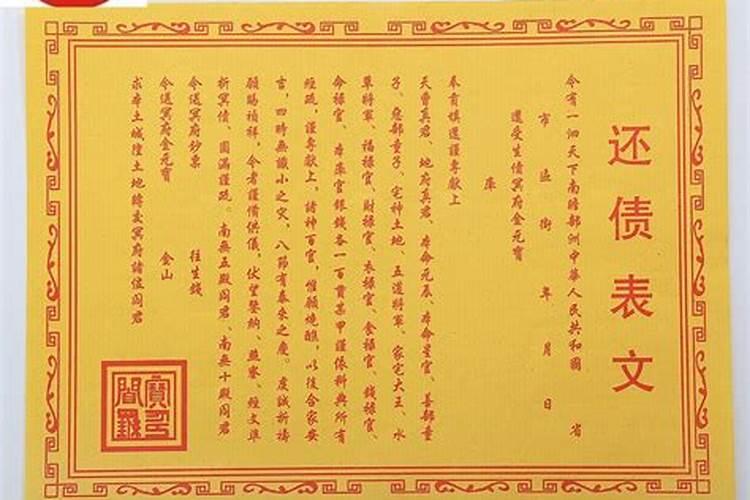 还债表文
今有一泗天下南瞻部洲中華人民共和國 省
市 區 街 年 月 日
還受生債冥府金元寶
庫
奉育填還謹專獻上
天曹真君、地府真君、本命元辰、本命星官、善部童
子、惡部童子、宅神土地、五道將軍、家宅大王、水
草將軍、福祿官、財祿官、衣祿官、食祿官、錢祿官、
命祿官、本庫官銀錢各一百貫某甲謹依科典所有
經疏，謹專獻上，諸神百官，惟願燒醮，以後合家安
言，四時無識小之灾，八節有泰來之慶。虔誠祈禱
願賜禎祥，令者謹備供儀，伏望鑒納、燕寧、經文準
折冥債、圓滿謹疏。南無五殿阎君、南無十殿阎君
令送冥府鈔票 往生錢
令送冥府金元寶 金山
求本土城隍土地轉交冥府諸位阎君